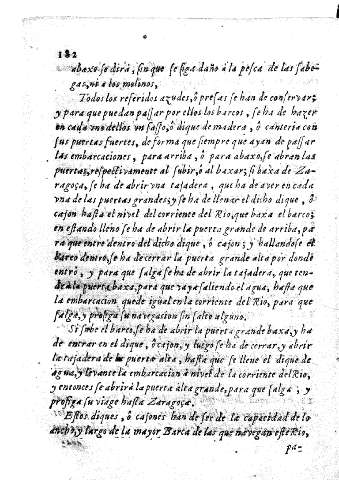 182
abaxo se dirà, sin que se siga daño à la pesca de las sabo-
gas, ni a los molinos,
Todos los referidos azudes, ò presas se han de conservar;
y para que puedan passar por ellos los barcos, se ha de hazer
en cada uno dellos un fosso, ò dique de madera, ò canteria con
sus puertas fuertes, de forma que siempre que ayan de passar
las embarcaciones, para arriba, ò para abaxo, se abran las
puertas, respectivamente al subir, ò al baxar; si baxa de Za-
ragoça, se ha de abrir vna tajadera, que ha de aver en cada
vna de las puertas grandes; y se ha de llenar el dicho dique, ò
cajon hasta el nivel del corriente del Rio, que baxa el barco;
en estando lleno se ha de abrir la puerta grande de arriba, pa-
ra que entre dentro del dicho dique, ò cajon; y hallandose el
barco dentro, se ha de cerrar la puerta grande alta por donde
entrò, y para que salga se ha de abrir la tajadera, que ten-
drà la puerta baxa, para que vaya saliendo el agua, hasta que
la embarcacion quede igual en la corriente del Rio, para que
salga, y prosiga su navegacion sin salto alguno.
Si sube el barco, se ha de abrir la puerta grande baxa, y ha
de entrar en el dique, ò cajon, y luego se ha de cerrar, y abrir
la tajadera de la puerta alta, hasta que se llene el dique de
agua, y levante la embarcacion à nivel de la corriente del Rio,
y entonces se abrirà la puerta alta grande, para que salga, y
prosiga su viage hasta Zaragoça.
Estos diques, ò cajones han de ser de la capacidad de lo
ancho, y largo de la mayor Barca de las que navegan este Rio,
pa-